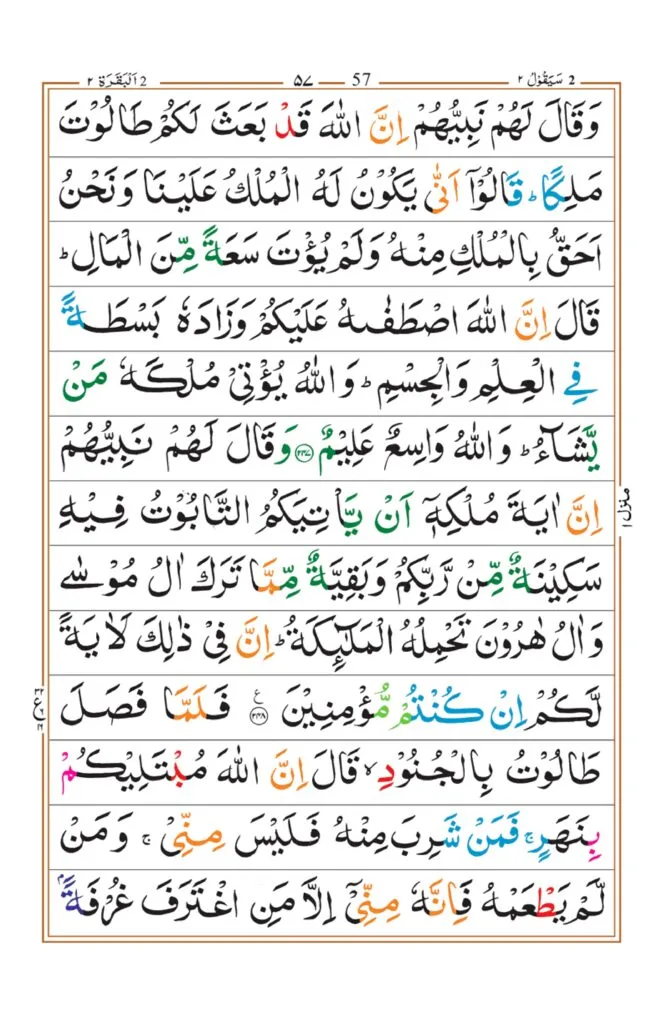 2 سَيَقُوْلُ ٢ 57 ۵۷ 2 اَلْبَقَرَة ٢
وَقَالَ لَهُمْ نَبِيُّهُمْ اِنَّ اللّٰهَ قَدْ بَعَثَ لَكُمْ طَالُوْتَ
مَلِكًا ؕ قَالُوْۤا اَنّٰى يَكُوْنُ لَهُ الْمُلْكُ عَلَيْنَا وَنَحْنُ
اَحَقُّ بِالْمُلْكِ مِنْهُ وَلَمْ يُؤْتَ سَعَةً مِّنَ الْمَالِ ؕ
قَالَ اِنَّ اللّٰهَ اصْطَفٰىهُ عَلَيْكُمْ وَزَادَهٗ بَسْطَةً
فِي الْعِلْمِ وَالْجِسْمِ ؕ وَاللّٰهُ يُؤْتِيْ مُلْكَهٗ مَنْ
يَّشَآءُ ؕ وَاللّٰهُ وَاسِعٌ عَلِيْمٌ ۝۲۴۷ وَقَالَ لَهُمْ نَبِيُّهُمْ
اِنَّ اٰيَةَ مُلْكِهٖۤ اَنْ يَّاْتِيَكُمُ التَّابُوْتُ فِيْهِ
منزل ١
سَكِيْنَةٌ مِّنْ رَّبِّكُمْ وَبَقِيَّةٌ مِّمَّا تَرَكَ اٰلُ مُوْسٰى
وَاٰلُ هٰرُوْنَ تَحْمِلُهُ الْمَلٰٓئِكَةُ ؕ اِنَّ فِيْ ذٰلِكَ لَاٰيَةً
لَّكُمْ اِنْ كُنْتُمْ مُّؤْمِنِيْنَ ۝۲۴۸ ع فَلَمَّا فَصَلَ
طَالُوْتُ بِالْجُنُوْدِ ۙ قَالَ اِنَّ اللّٰهَ مُبْتَلِيْكُمْ
بِنَهَرٍ ۚ فَمَنْ شَرِبَ مِنْهُ فَلَيْسَ مِنِّيْ ۚ وَمَنْ
لَّمْ يَطْعَمْهُ فَاِنَّهٗ مِنِّيْۤ اِلَّا مَنِ اغْتَرَفَ غُرْفَةًۢ